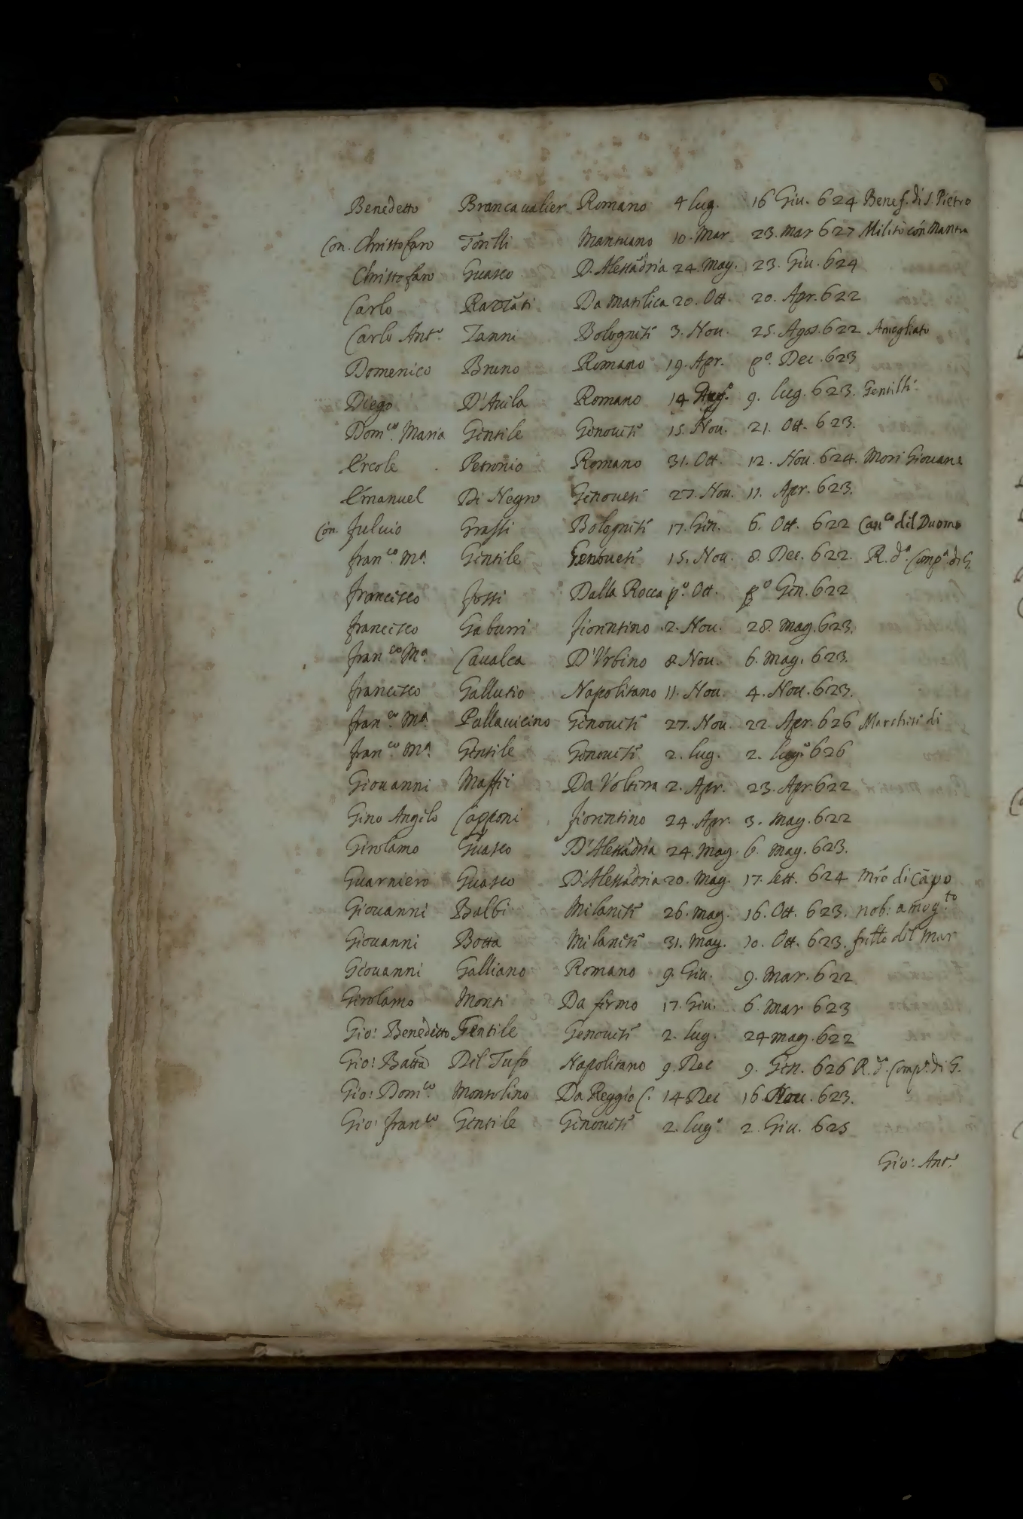 Benedetto Brancaualier Romano 4 lug. 16 Giu. 624 Benef. di S. Pietro
Con. Christofaro Torelli Mantuano 10. Mar 23. Mar 627 Milito con Mantua
Christofaro Guasco D'Alessãdria 24. Mag. 23. Giu. 624
Carlo Da Matilica 20. Ott. 20. Apr. 622
Carlo Ant.º Zanni Bolognese 3. Nou. 25. Agos. 622 Amogliato
Domenico Bruno Romano 19. Apr. pº. Dec. 623
Diego D'Auila Romano 14 9. lug. 623.
Dom.co Maria Gentile Genouese 15. Nou. 21. Ott. 623.
Ercole Petronio Romano 31. Ott. 12. Nou. 624. Morì Giouane
Emanuel Di Negro Genouese 27. Nou. 11. Apr. 623.
Con. Fuluio Grassi Bolognese 17. Gen. 6. Ott. 622 Can.co del Duomo
Fran.co M.ª Gentile Genouese 15. Nou. 8. Dec. 622. R. dª. Comp.ª di G.
Francesco Fossi Dalla Rocca pº. Ott. pº Gen. 622
Francesco Gaburri Fiorentino 2. Nou. 28. Mag. 623.
Fran.co M.ª Caualca D'Vrbino 8 Nou. 6. Mag. 623.
Francesco Gallutio Napolitano 11. Nou. 4. Nou. 623.
Fran.co M.ª Pallauicino Genouese 27. Nou. 22. Apr. 626 Marchese di
Fran.co M.ª Gentile Genouese 2. lug. 2. lugº 626
Giouanni Maffei Da Volterra 2. Apr. 23. Apr. 622
Gino Angelo Capponi Fiorentino 24. Apr. 3. Mag. 622
Girolamo Guasco D'Alessãdria 24. Mag. 6. Mag. 623.
Guarniero Guasco D'Alessãdria 20. Mag. 17. Sett. 624 Mrõ di cãpo
Giouanni Balbi Milanese 26. Mag. 16. Ott. 623. nob. amog.to
Giouanni Botta Milanese 31. Mag. 10. Ott. 623. frãte del Mar
Giouanni Galliano Romano 9. Giu. 9. Mar. 622
Girolamo Monti Da fermo 17. Giu. 6. Mar 623
Gio: Benedetto Gentile Genouese 2. lug. 24 Mag. 622
Gio: Batta Del Tufo Napolitano 9. Dec 9. Gen. 626 R. dª. Comp.ª di G.
Gio: Dom.co Da Reggio C. 14 Dec 16 Nou. 623.
Gio: Fran.co Gentile Genouese 2. lugº 2. Giu. 625
Gio: Ant.º